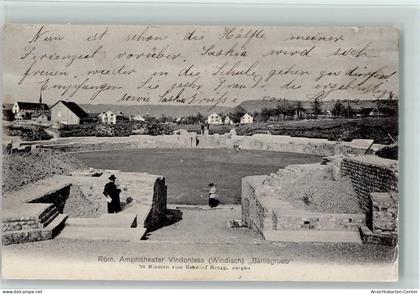 Nun ist schon die Hälfte meiner
Ferienzeit vorüber. Saskia wird sich
freuen wieder in die Schule gehen zu dürfen
Empfangen Sie
sowie Saskia
Röm. Amphitheater Vindonissa (Windisch) „Bärlisgrueb"
10 Minuten vom Bahnhof Brugg, Aargau